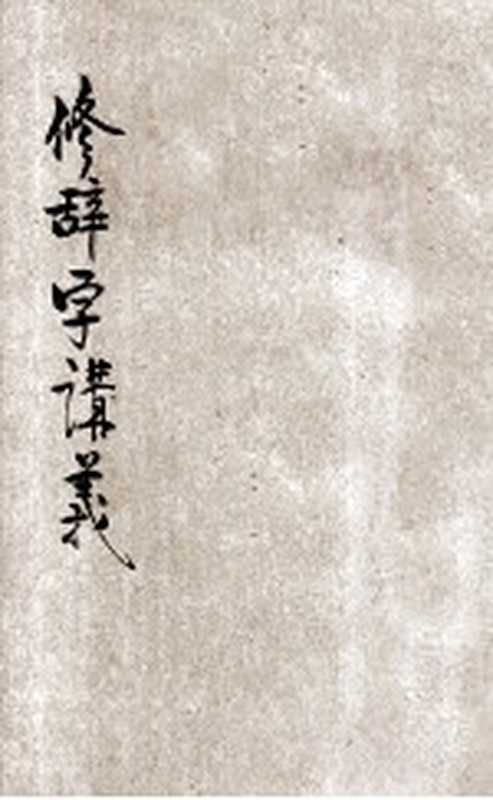 修辞学講義